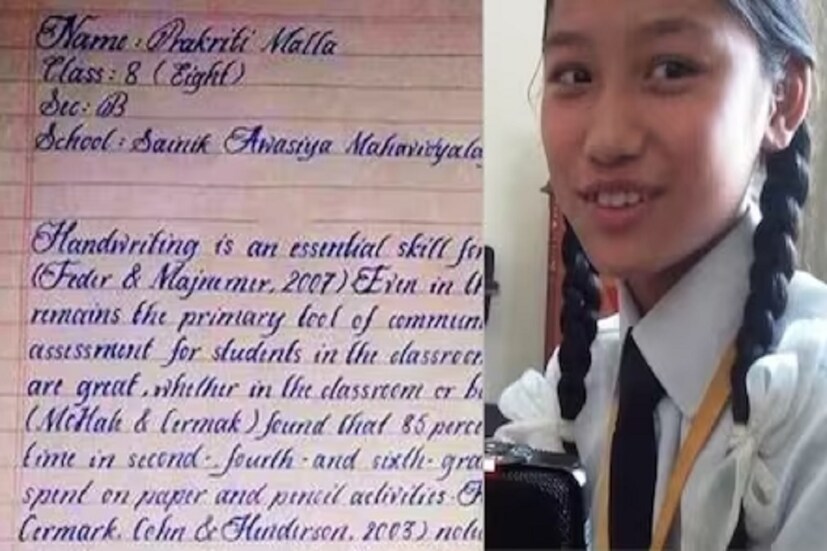 Name : Prakriti Malla
Class : 8 ( Eight )
Sec : B
School : Sainik Awasiya Mahavidyala
Handwriting is an essential skill for
(Feder & Majnemer, 2007) Even in th
remains the primary tool of commun
assessment for students in the classroom
are great , whether in the classroom or
(McHale & Cermak ) found that 85 perce
time in second-, fourth - and sixth- gra
spent on paper and pencil activities.
Cermark, Cohn & Henderson, 2003) note